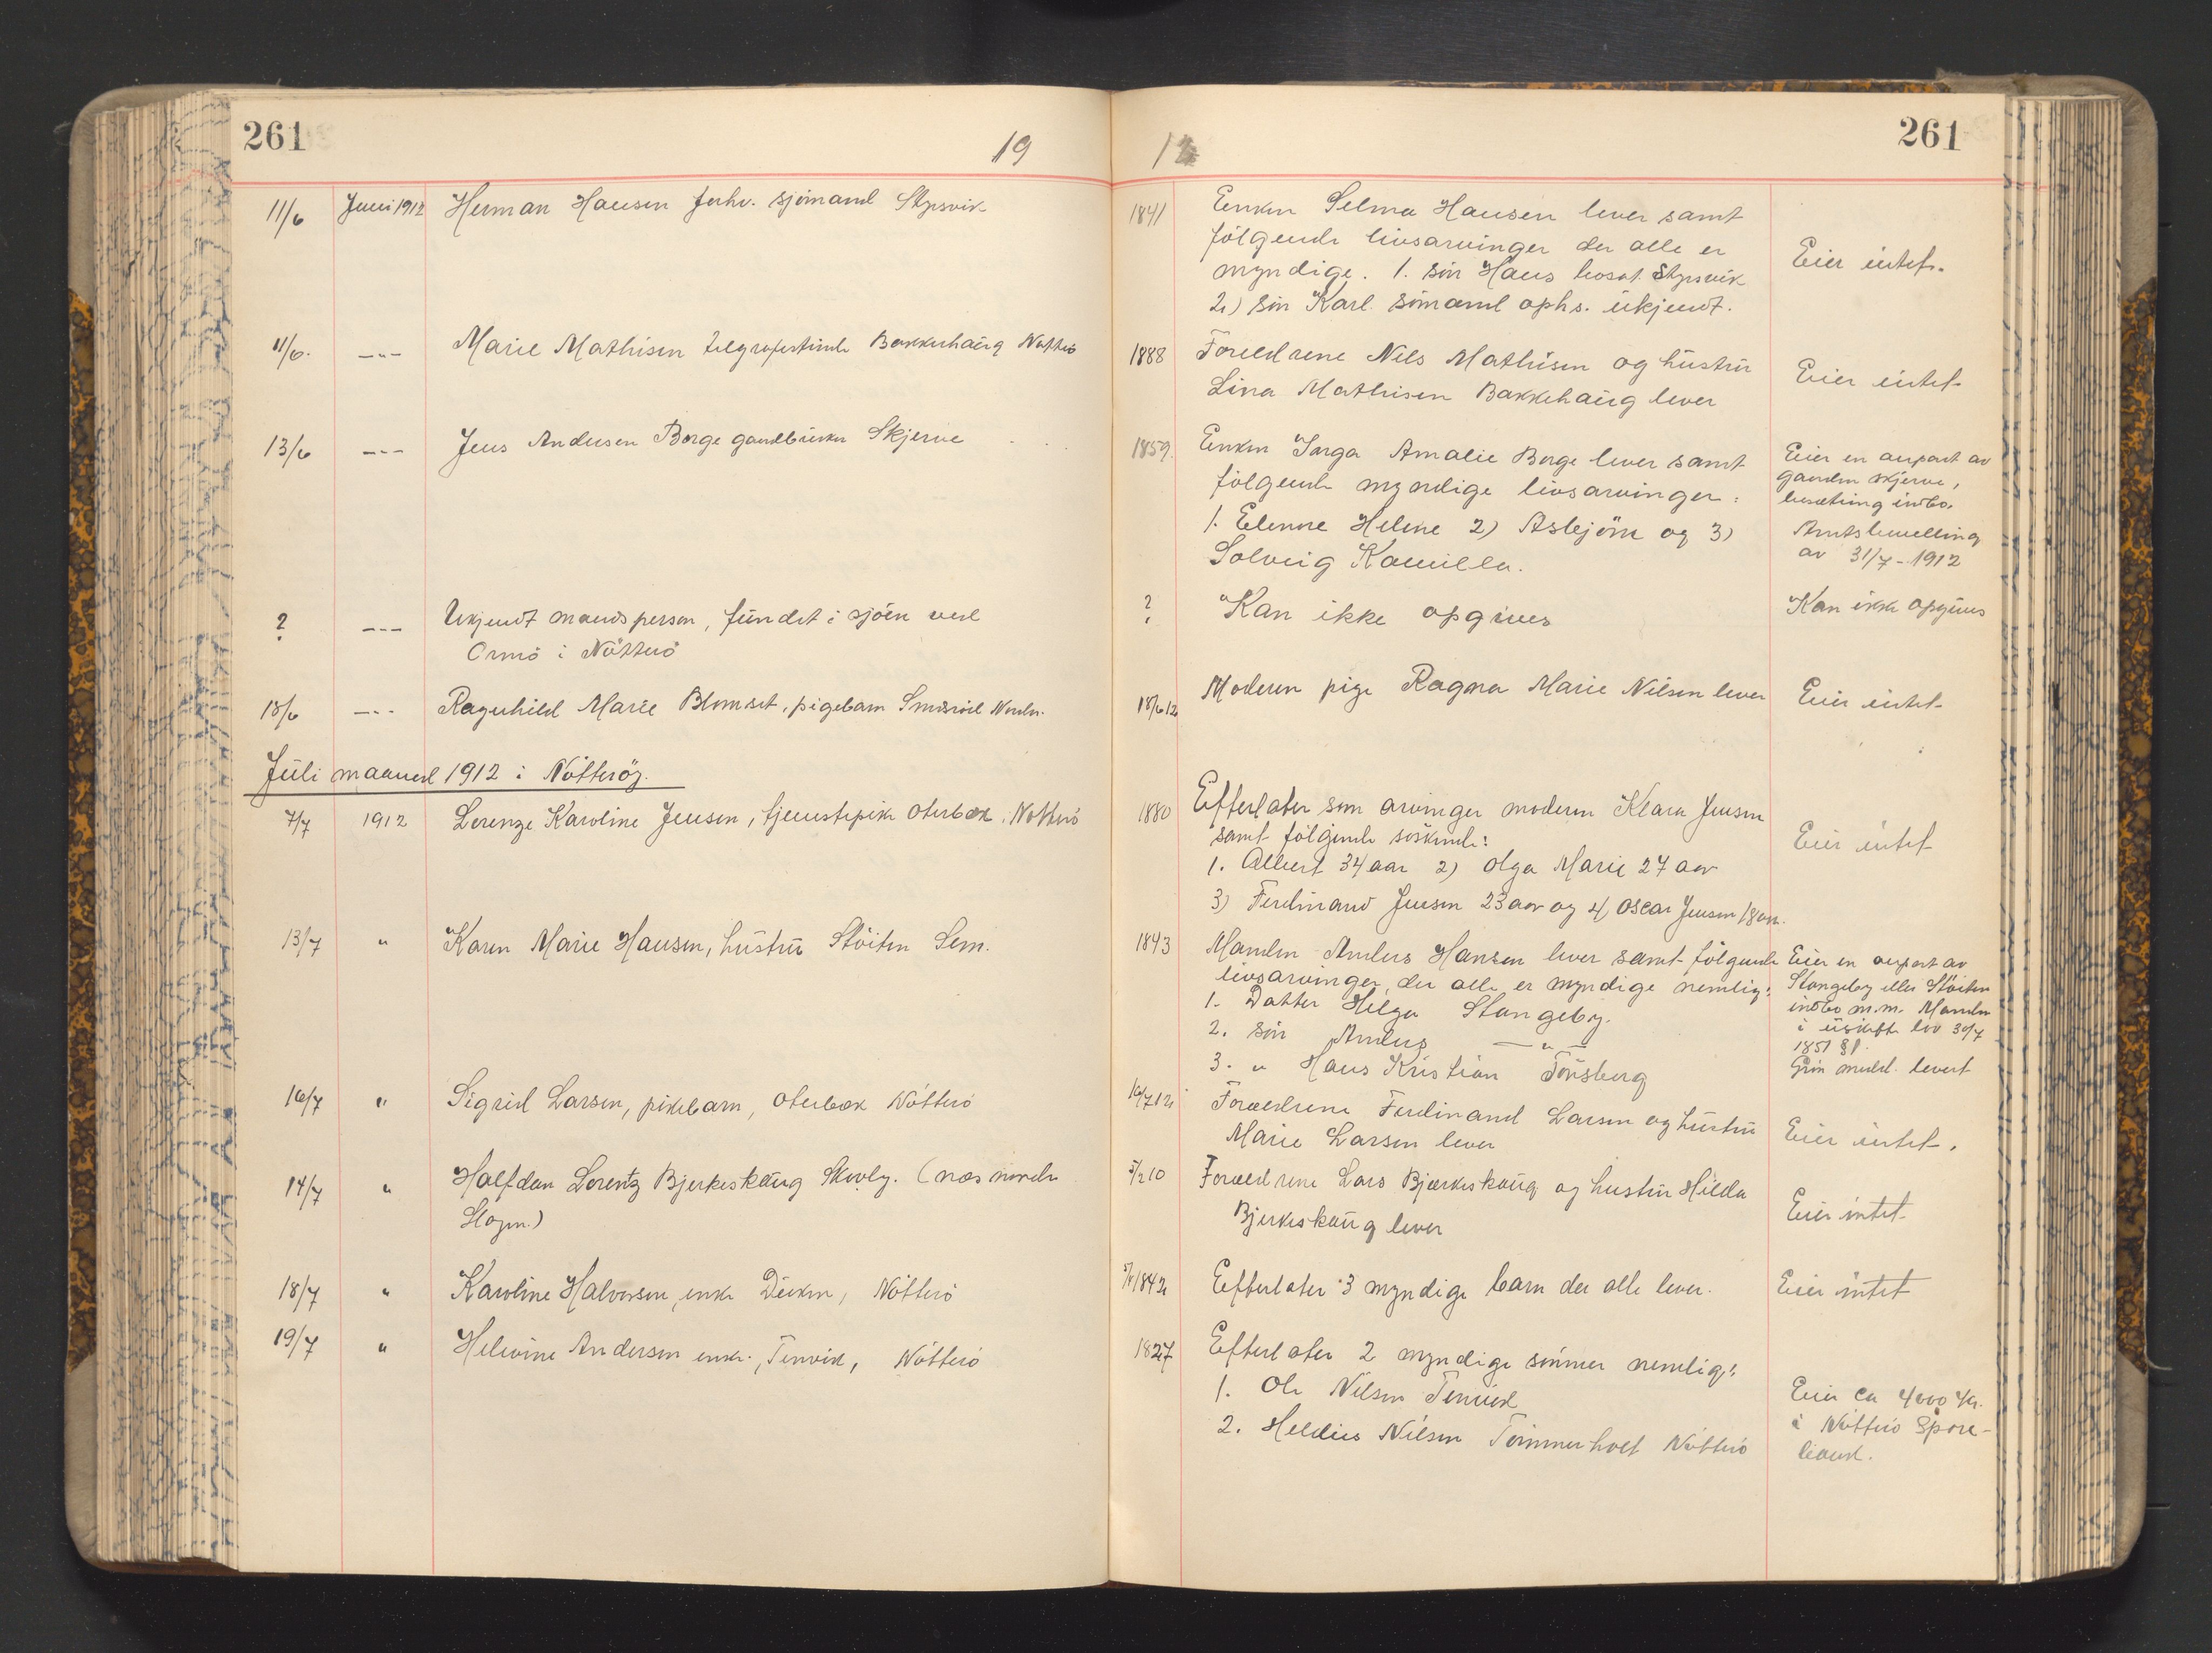 261
19
12
261
11/6 Juni 1912 Herman Hansen forhv. sjömand Styrsvik
1841 Enken Selma Hansen lever samt
fölgende livsarvinger der alle er
myndige. 1. sön Hans bosat Styrsvik
2) sön Karl sömand ophs. ukjendt.
Eier intet.
11/6. -"- Marie Mathisen telegrafistinde Bakkehaug Nötterö
1888 Foreldrene Nils Mathisen og hustru
Lina Mathisen Bakkehaug lever
Eier intet
13/6 -"- Jens Andersen Borge gaardbruker Skjerve
1859. Enken Inga Amalie Borge lever samt
fölgende myndige livsarvinger:
1. Elenore Helene 2) Asbjörn og 3)
Solveig Kamilla.
Eier en anpart av
gaarden Skjerve,
besætning indbo.
Amtsbevilling
av 31/7-1912
? -"- Ukjendt mandsperson, fundet i sjöen ved
Ormö i Nötterö
? Kan ikke opgives
Kan ikke opgives
18/6 -"- Ragnhild Marie Blomset, pigebarn Smidsröd
18/6 12 Moderen pige Ragna Marie Nilsen lever
Eier intet
Juli maaned 1912 i Nötterö
7/7 1912 Lorenze Karoline Jensen, tjenestepike Oterbæk i Nötterö
1880 Efterlater som arvinger moderen Klara Jensen
samt fölgende söskende:
1. Albert 34 aar 2) Olga Marie 27 aar
3) Ferdinand Jensen 23 aar og 4) Oscar Jensen 18 aar.
Eier intet
13/7 " Karen Marie Hansen, hustru Stöiten Sem.
1843 Manden Anders Hansen lever samt fölgende
livsarvinger, der alle er myndige nemlig:
1. Datter Helga Stangeby.
2. sön Anders -"-
3. " Hans Kristian Tönsberg
Eier en anpart av
Stangeby eller Stöiten
indbo m.m. Manden
i uskifte lov 30/7
1851 § 1.
levert
16/7 " Sigrid Larsen, pikebarn, Oterbæk Nötterö
16/7 12 Forældrene Ferdinand Larsen og hustru
Marie Larsen lever
Eier intet.
14/7 " Halfdan Lorentz Bjerkeskaug Skovly. (næs nordre
Slagen.)
5/2 10 Forældrene Lars Bjærkeskaug og hustru Hilda
Bjerkeskaug lever
Eier intet
18/7 " Karoline Halvorsen, enke Duken, Nötterö
1842 Efterlater 3 myndige barn der alle lever.
Eier intet
19/7 " Helvine Andersen enke, Tenvik, Nötterö
1827 Efterlater 2 myndige sönner nemlig:
1. Ole Nilsen Tenvik
2. Heldius Nilsen Tömmerholt Nötterö
Eier ca 4000 Kr.
i Nötterö Spare-
bank.